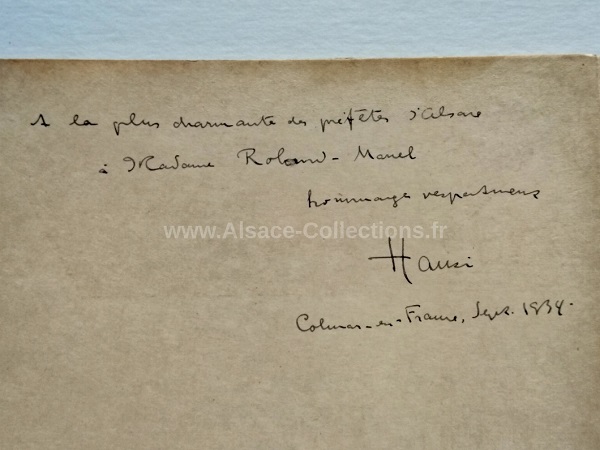 A la plus charmante des préfètes d'Alsace
à Madame Roland-Manuel
hommages respectueux
www.Alsace-Collections.fr
Hansi
Colmar-en-France, Sept. 1934.